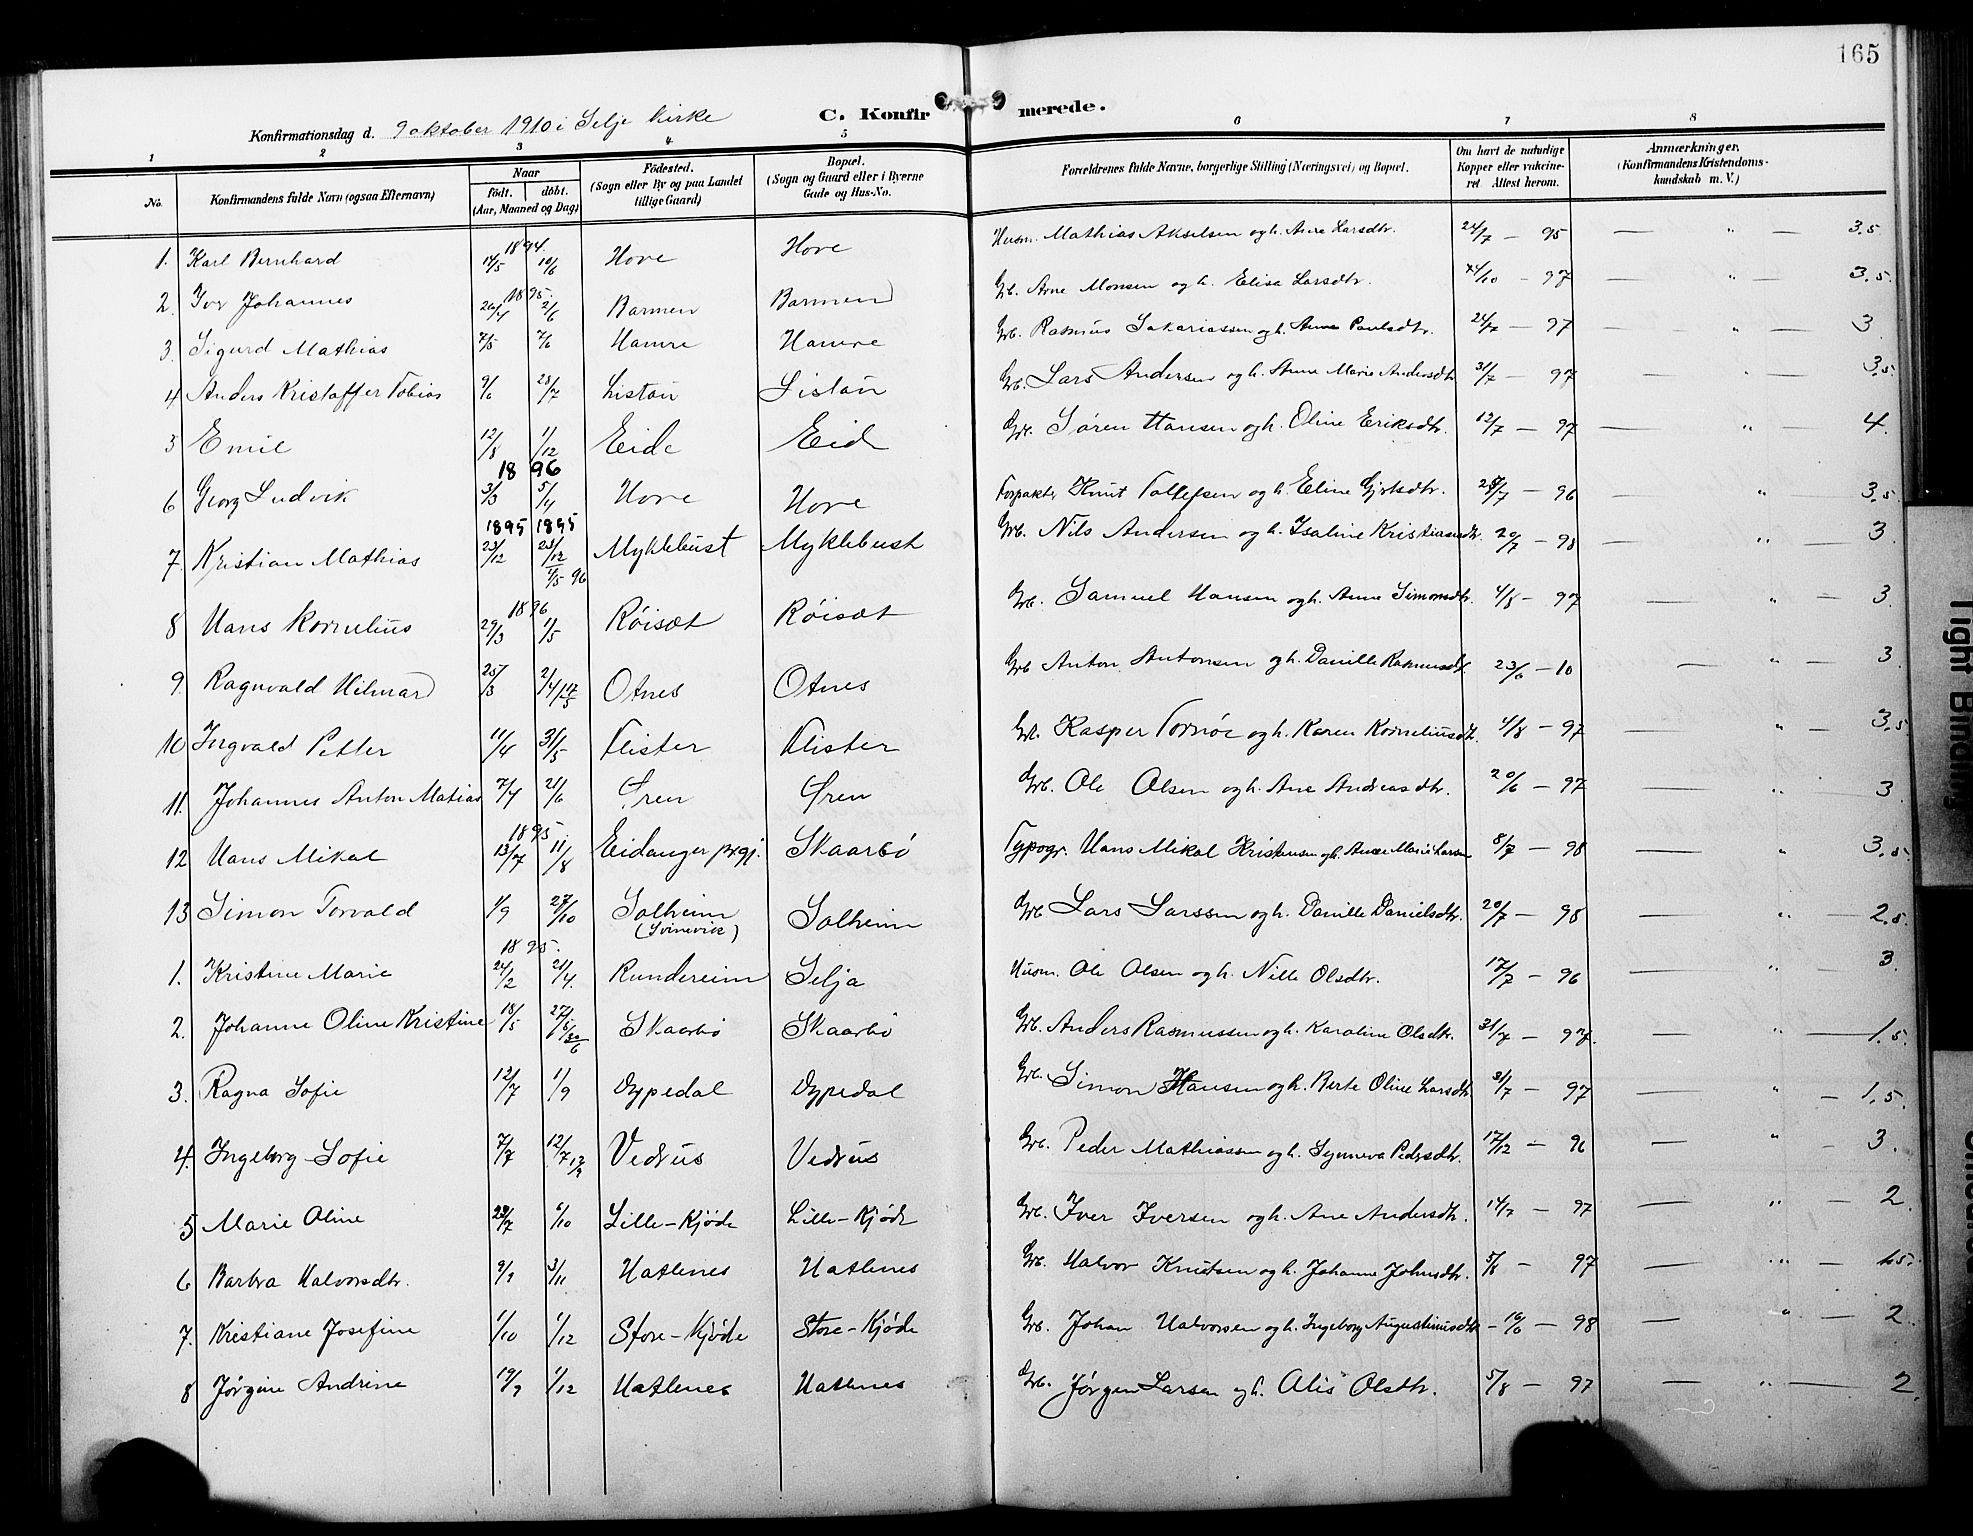 165
C. Konfirmerede.
Konfirmationsdag d. 9 oktober 1910 i Selje Kirke
1 2 3 4 5 6 7 8
No. Konfirmandens fulde Navn (ogsaa Efternavn) Naar født. døbt. (Aar, Maaned og Dag) Fødested. (Sogn eller By og paa Landet tillige Gaard) Bopæl. (Sogn og Gaard eller i Byerne Gade og Hus-No. Forældrenes fulde Navne, borgerlige Stilling (Næringsvei) og Bopæl. Om havt de naturlige Kopper eller vakcineret. Attest herom. Anmærkninger. (Konfirmandens Kristendomskundskab m. V.)
1894.
1. Karl Bernhard 14/5 10/6 Hove Hove Husm. Mathias Akselsen og h. Ane Larsdtr. 24/7 — 95 — " — 3.5
1895.
2. Iver Johannes 20/4 2/6 Barmen Barmen Grb. Arne Monsen og h. Elisa Larsdtr. /10 - 97 — " — 3.5
3. Sigurd Mathias 7/5 7/6 Hamre Hamre Grb. Rasmus Sakariassen og h. Anne Paulsdtr. 24/7 — 97 — " — 3
4 Anders Kristoffer Tobias 9/6 28/7 Listau Listau Grb. Lars Andersen og h. Anne Marie Andersdtr 31/7 — 97 — " — 3.5
5 Emil 12/8 1/12 Eide Eid Grb. Søren Hansen og h. Oline Eriksdtr. 12/7 — 97 — " — 4.
1896
6 Georg Ludvik 3/3 5/4 Hove Hove Forpakter Knut Tollefsen og h. Eline Gjertsdtr. 28/7 — 96 — " — 3.5
1895 1895
7. Kristian Mathias 23/12 23/12 4/5 96 Myklebust Myklebust Grb. Nils Andersen og h. Isaline Kristiansdtr. 20/7 — 98 — " — 3
1896
8 Hans Kornelius 29/3 1/5 Røisæt Røisæt Grb. Samuel Hansen og h. Anne Simonsdtr. 4/8 — 97 — " — 3.
9. Ragnvald Hilmar 25/3 2/4 17/5 Otnes Otnes Grb Anton Antonsen og h. Danille Rasmusdtr. 23/6 — 10 — " — 3
10 Ingvald Petter 11/4 31/5 Flister Flister Grb. Kasper Tornøe og h. Karen Korneliusdtr. 4/8 — 97 — " — 3.5
11. Johannes Anton Matias 7/4 21/6 Øren Øren Grb. Ole Olsen og h. Ane Andreasdtr. 20/6 — 97 — " — 3
1895.
12 Hans Mikal 13/7 11/8 Eidanger prgj. Skaarbø Typogr. Hans Mikal Kristensen og h. Anne Marie Larsen 8/7 — 98 — " — 3.5
13 Simon Torvald 1/9 27/10 Solheim (Svinevik) Solheim Grb Lars Larssen og h. Danille Danielsdtr. 20/7 — 98 — " — 2.5
1895.
1. Kristine Marie 24/2 21/4. Rundereim Selja Husm. Ole Olsen og h. Nille Olsdtr. 17/7 — 96 — " — 3.
2. Johanne Oline Kristine 18/5 27/5 30/6 Skaarbø Skaarbø Grb. Anders Rasmussen og h. Karoline Olsdtr. 31/7 — 97. — " — 1.5.
3. Ragna Sofie 12/7 1/9 Dypedal Dypedal Grb. Simon Hansen og h. Berte Oline Larsdtr. 31/7 — 97 — " — 1.5.
4. Ingeborg Sofie 7/7 12/7 Vedvus Vedvus Grb. Peder Mathiassen og h. Synneva Pedersdtr. 17/12 — 96 — " — 3.
5 Marie Oline 23/7 6/10 Lille-Kjøde Lille-Kjøde Grb. Iver Iversen og h. Ane Andersdtr. 14/7 — 97 — " — 2.
6 Barbra Halvorsdtr. 9/9 3/11 Hatlenes Hatlenes Grb. Halvor Knutsen og h. Johanne Johnsdtr. 5/8 — 97 — " — 1.5.
7. Kristiane Josefine 1/10 1/12 Store-Kjøde Store-Kjøde Grb. Johan Halvorsen og h. Ingeborg Augustinusdtr. 10/6 — 98 — " — 2.
8 Jørgine Andrine 19/9 1/12 Hatlenes Hatlenes Grb. Jørgen Larsen og h. Alis Olsdtr. 5/8 — 97 — " — 2.
Tight Binding